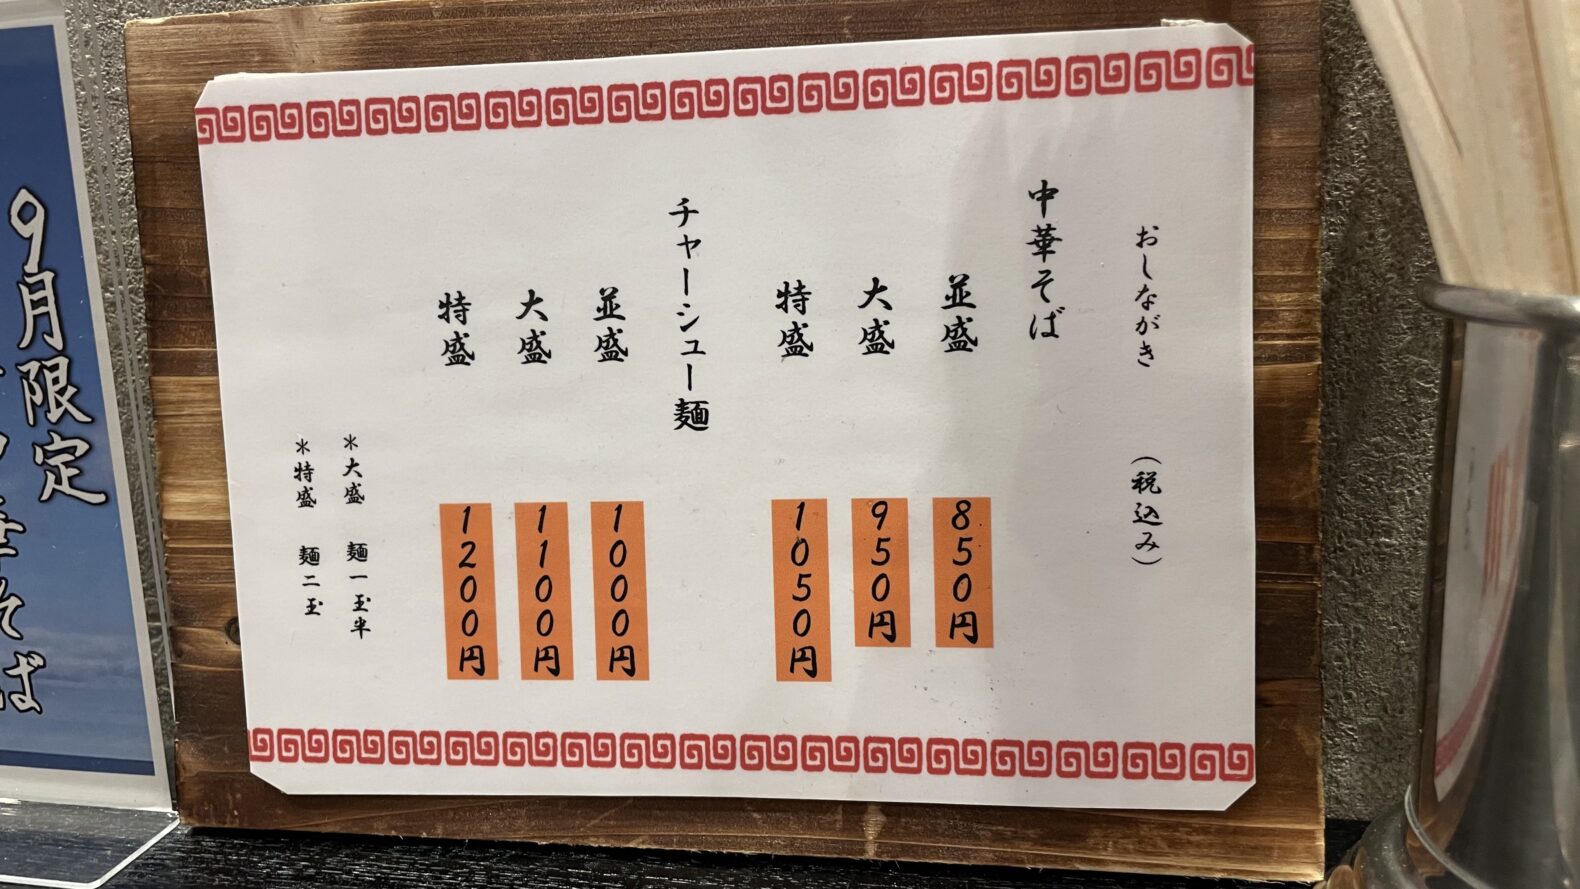 おしながき （税込み）
中華そば
並盛 850円
大盛 950円
特盛 1050円
チャーシュー麺
並盛 1000円
大盛 1100円
特盛 1200円
＊大盛 麺一玉半
＊特盛 麺二玉
9月限定
そば